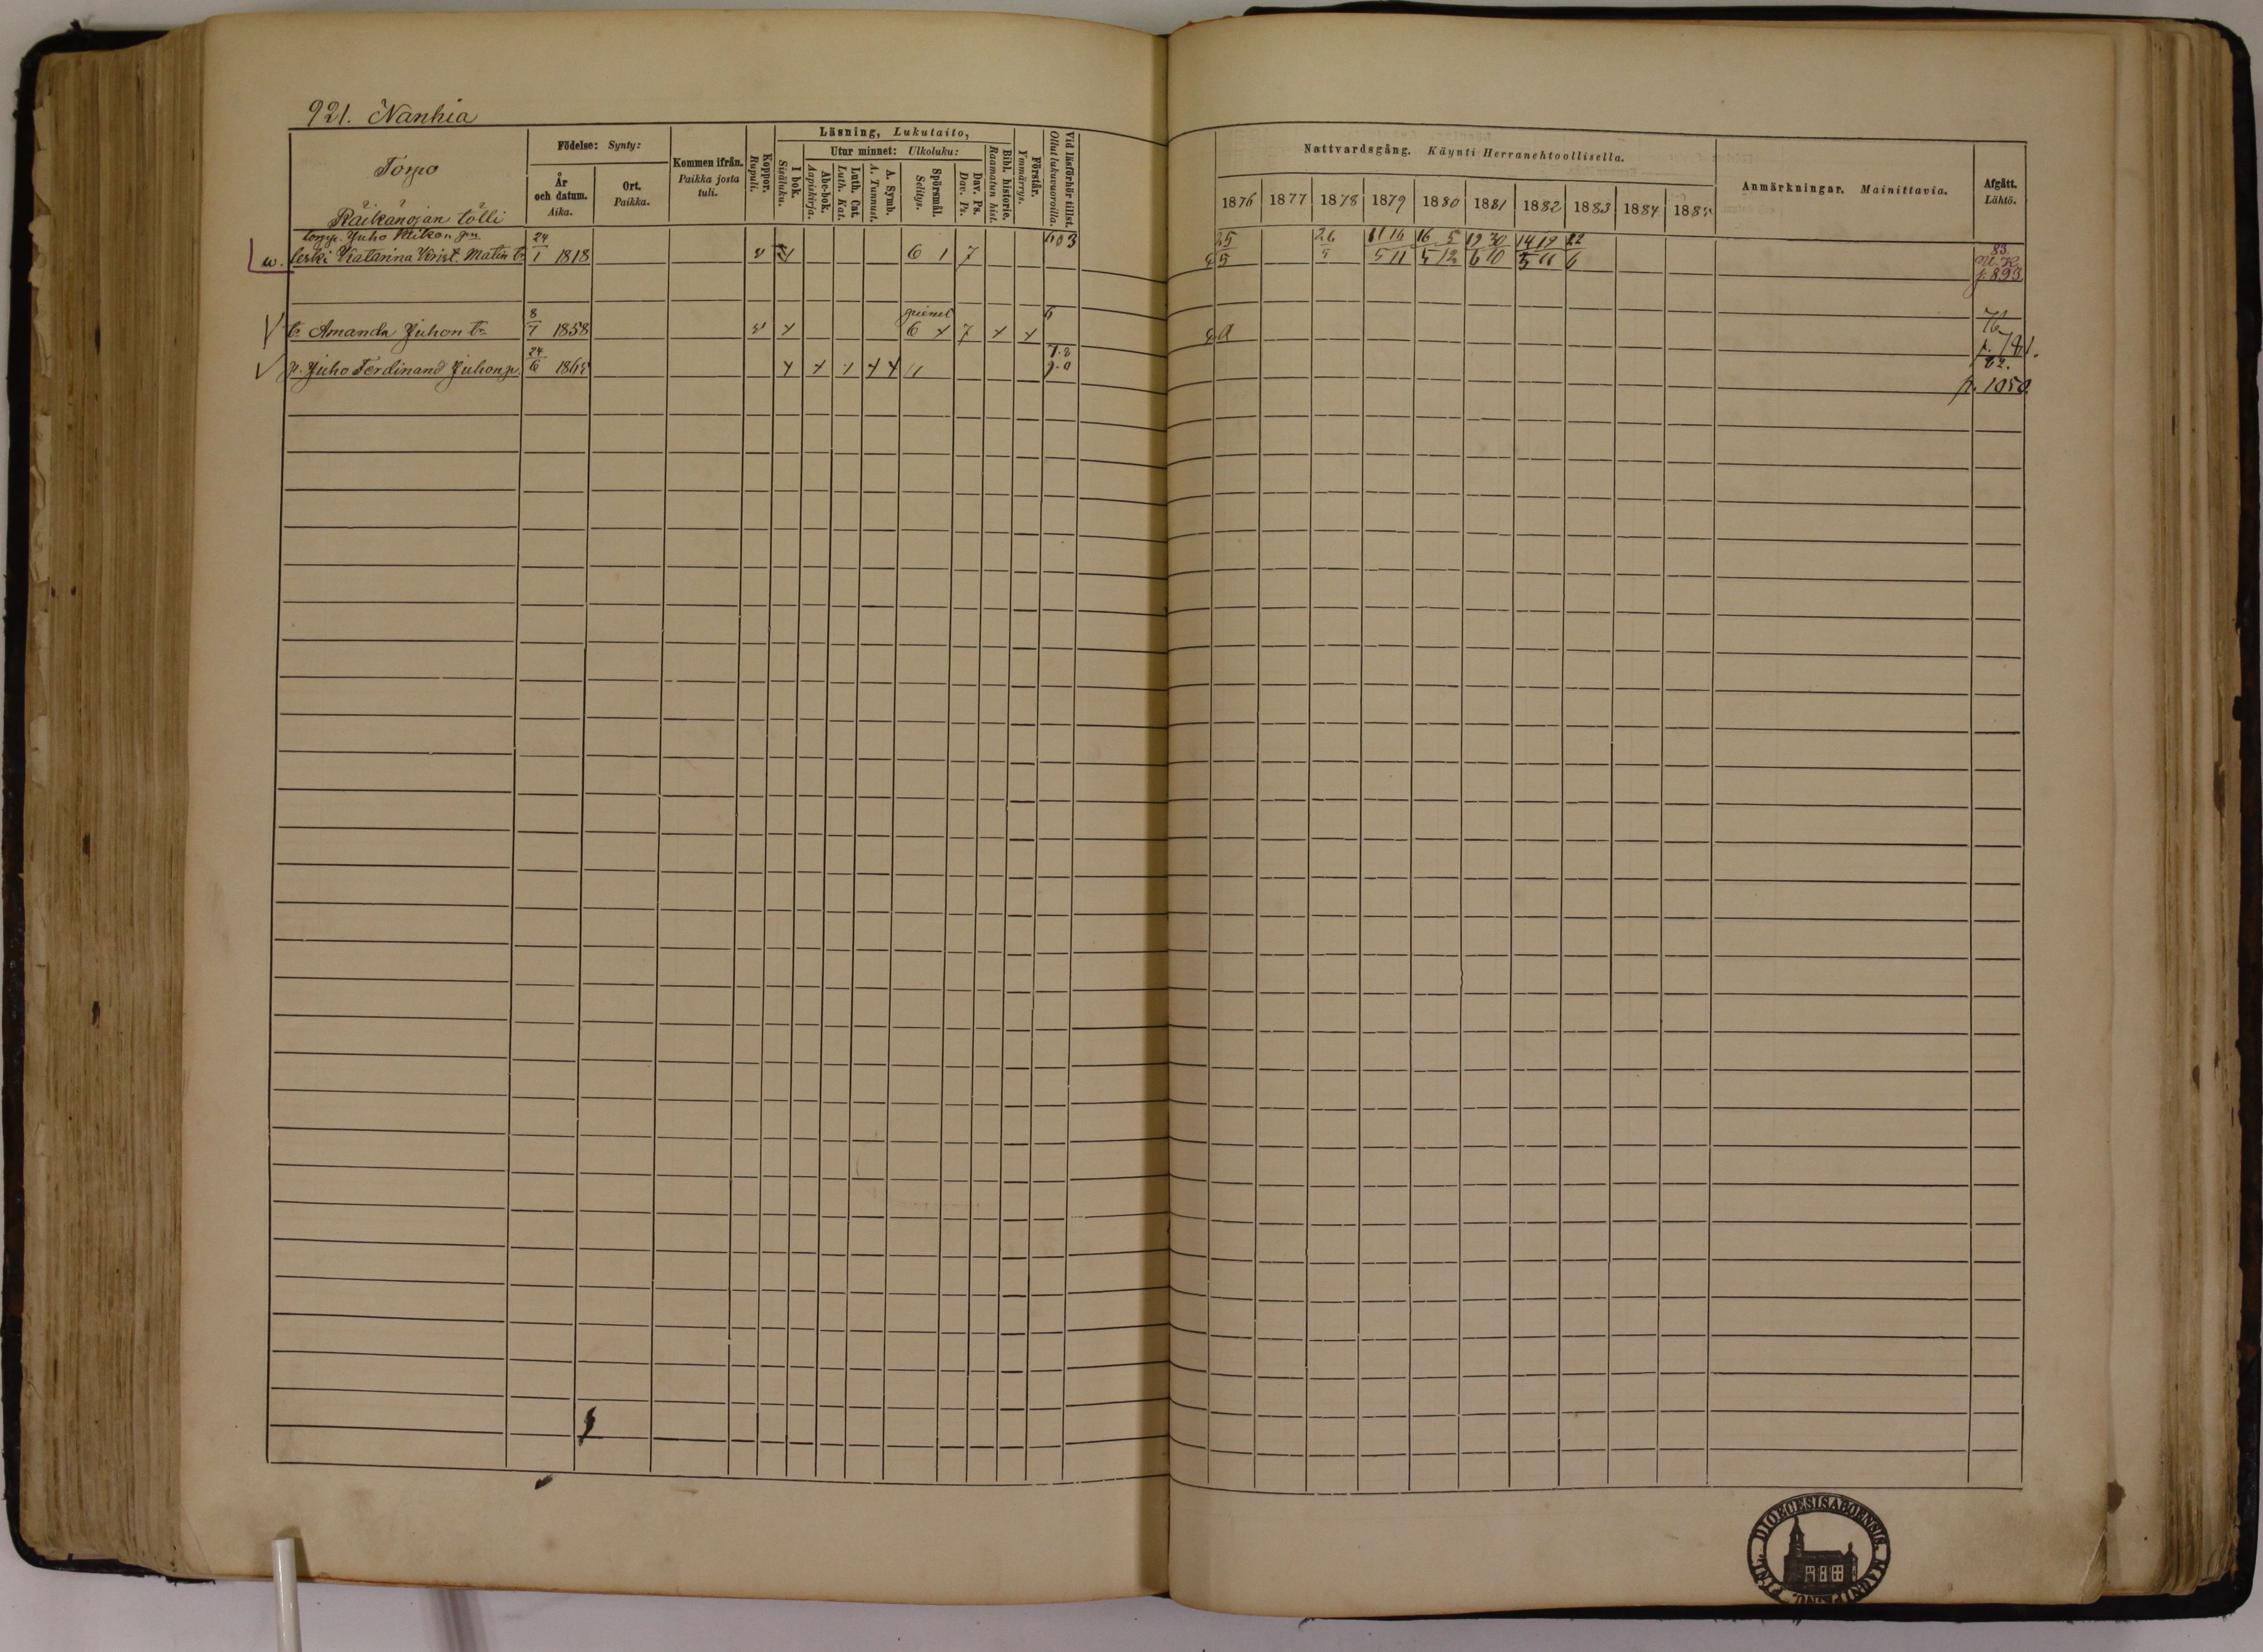 921. Nanhia
Torpo
Räikänojan tölli
Födelse: Synty:
År och datum. Aika.
Ort. Paikka.
Kommen ifrån. Paikka josta tuli.
Koppor. Rupuli.
Läsning, Lukutaito,
I bok. Sisäluku.
Utur minnet: Ulkoluku:
Abc-bok. Aapiskirja.
Luth. Cat. Luth. Kat.
A. Symb. A. Tunnust.
Spörsmål. Selitys.
Dav. Ps. Dav. Ps.
Bibl. historie. Raamatun hist.
Förstår. Ymmärrys.
Vid läsförhör tillst. Ollut lukuvuoroilla.
Nattvardsgång. Käynti Herranehtoollisella.
1876 1877 1878 1879 1880 1881 1882 1883 1884 1885
Anmärkningar. Mainittavia.
Afgått. Lähtö.
torpp. Juho
w. leski Katarina Krist. Matin tr 24/1 1818 6 1 7 25/5 26/5 11/5 16/11 16/5 5/12 19/6 30/10 14/5 19/11 22/6 83. p. 893
tr Amanda Juhon tr 8/7 1858 6 7 76 p. 781.
p. Juho Ferdinand Juhon p. 24/6 1865 82. p. 1050.
DIOECESIS ABOENSIS. MAGNI PRINC. FINL.